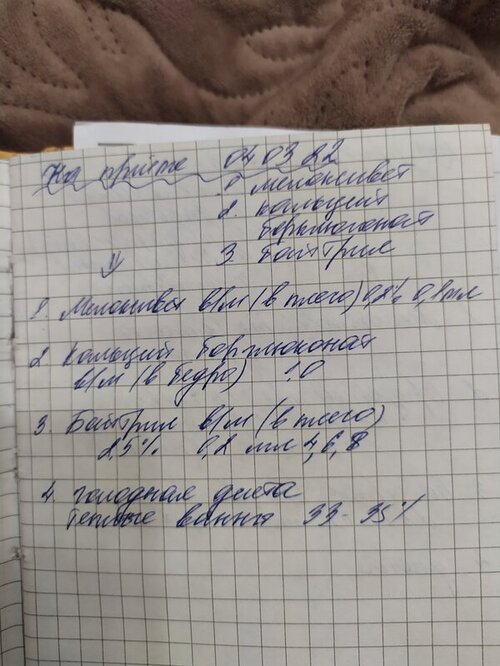 На приеме 04 03 22
1 мелоксивет
2. кальций
борглюконат
3 Байтрил
1. Мелоксивет в/м (в плечо) 0,2% 0,1 мл
2 Кальций борглюконат
в/м (в бедро) 1.0
3. Байтрил в/м (в плечо)
2,5% 0,2 мл 4,6,8
4. голодная диета
теплые ванны 33-35°